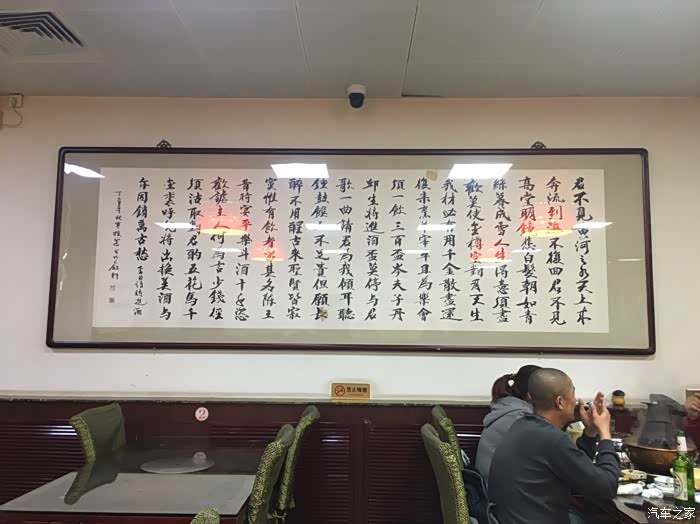 君不見黄河之水天上来
奔流到海不復回君不見
高堂明鏡悲白髮朝如青
絲暮成雪人生得意須盡
歡莫使金樽空對月天生
我材必有用千金散盡還
復来烹羊宰牛且為樂會
須一飲三百盃岑夫子丹
邱生將進酒盃莫停与君
歌一曲請君為我傾耳聽
鐘鼓饌玉不足貴但願長
醉不用醒古来聖賢皆寂
寞惟有飲者留其名陳王
昔時宴平樂斗酒十千恣
歡謔主人何為言少錢徑
須沽取對君酌五花馬千
金裘呼兒將出換美酒与
尔同銷萬古愁
李白詩將進酒
禁止吸烟
2
汽车之家